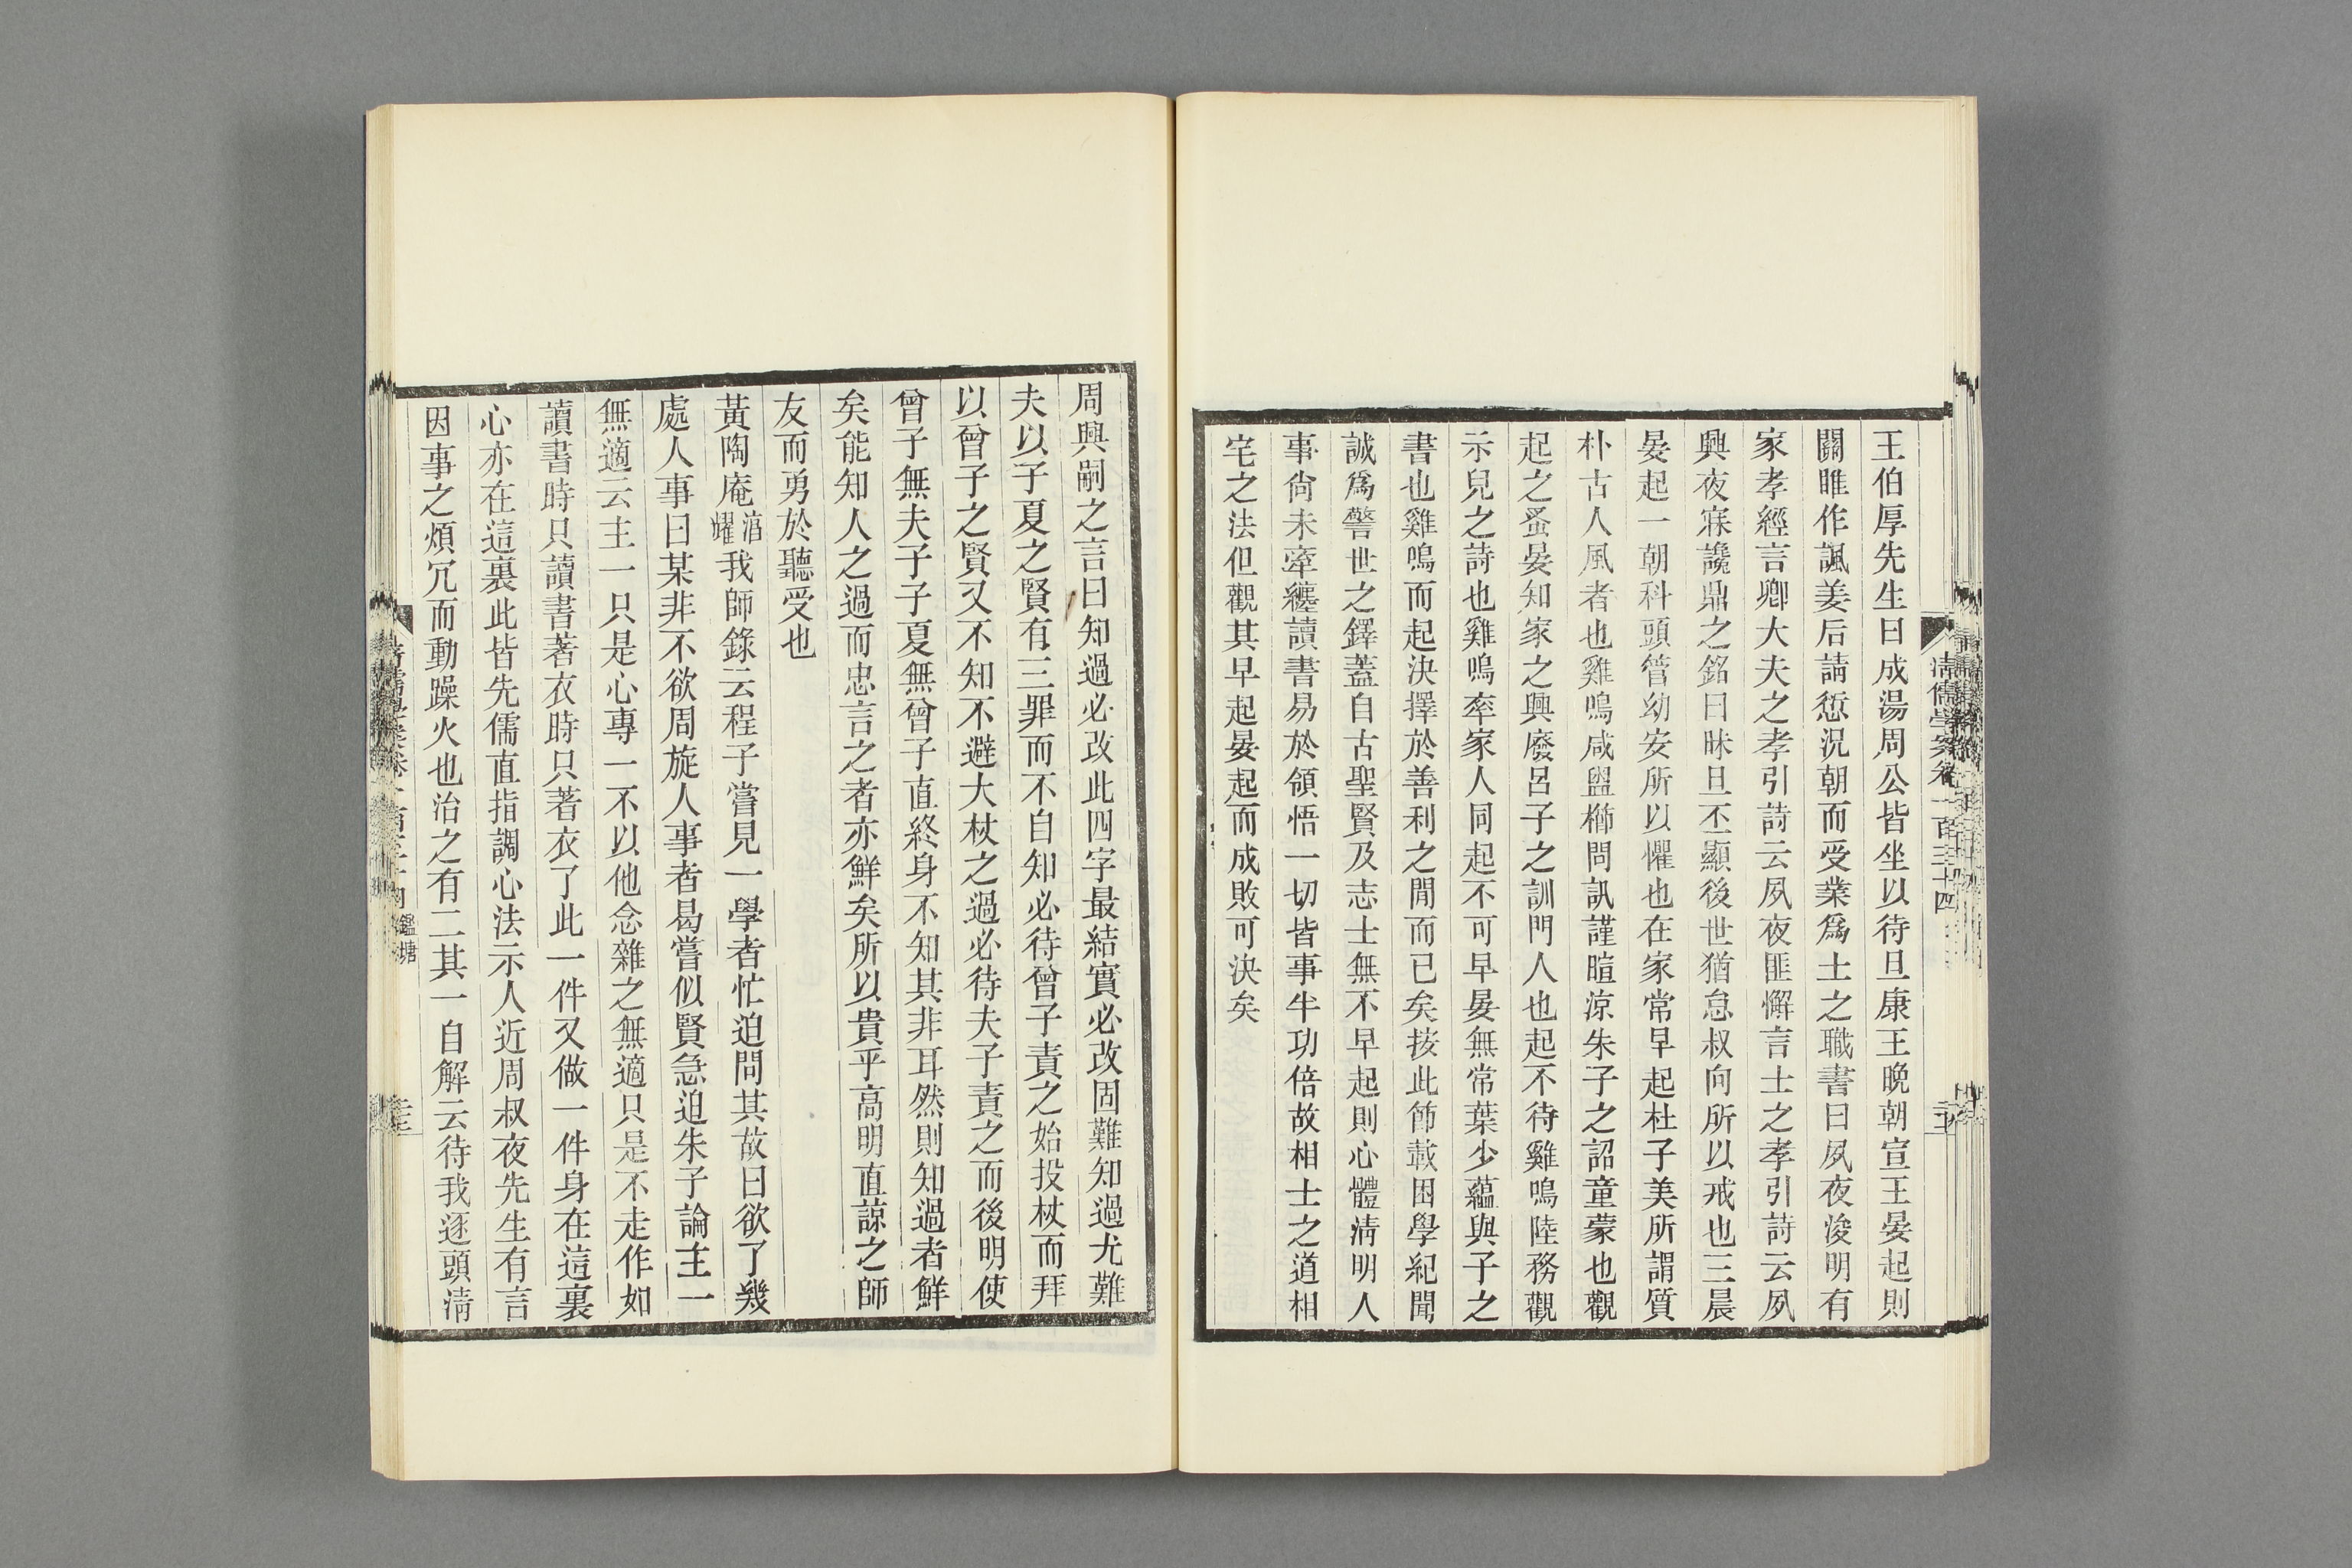 清儒學案卷一百三十四
王伯厚先生曰成湯周公皆坐以待旦康王晚朝宣王晏起則
關雎作諷姜后請愆況朝而受業爲士之職書曰夙夜浚明有
家孝經言卿大夫之孝引詩云夙夜匪懈言士之孝引詩云夙
興夜寐讒鼎之銘曰昧旦丕顯後世猶怠叔向所以戒也三晨
晏起一朝科頭管幼安所以懼也在家常早起杜子美所謂質
朴古人風者也雞鳴咸盥櫛問訊謹暄涼朱子之詔童蒙也觀
起之蚤晏知家之興廢呂子之訓門人也起不待雞鳴陸務觀
示兒之詩也雞鳴率家人同起不可早晏無常葉少蘊與子之
書也雞鳴而起決擇於善利之閒而已矣按此節載困學紀聞
誠爲警世之鐸蓋自古聖賢及志士無不早起則心體淸明人
事尙未牽纏讀書易於領悟一切皆事半功倍故相士之道相
宅之法但觀其早起晏起而成敗可決矣
周興嗣之言曰知過必改此四字最結實必改固難知過尤難
夫以子夏之賢有三罪而不自知必待曾子責之始投杖而拜
以曾子之賢又不知不避大杖之過必待夫子責之而後明使
曾子無夫子子夏無曾子直終身不知其非耳然則知過者鮮
矣能知人之過而忠言之者亦鮮矣所以貴乎高明直諒之師
友而勇於聽受也
黃陶庵淯耀我師錄云程子嘗見一學者忙迫問其故曰欲了幾
處人事曰某非不欲周旋人事者曷嘗似賢急迫朱子論主一
無適云主一只是心專一不以他念雜之無適只是不走作如
讀書時只讀書著衣時只著衣了此一件又做一件身在這裏
心亦在這裏此皆先儒直指調心法示人近周叔夜先生有言
因事之煩冗而動躁火也治之有二其一自解云待我逐頭淸